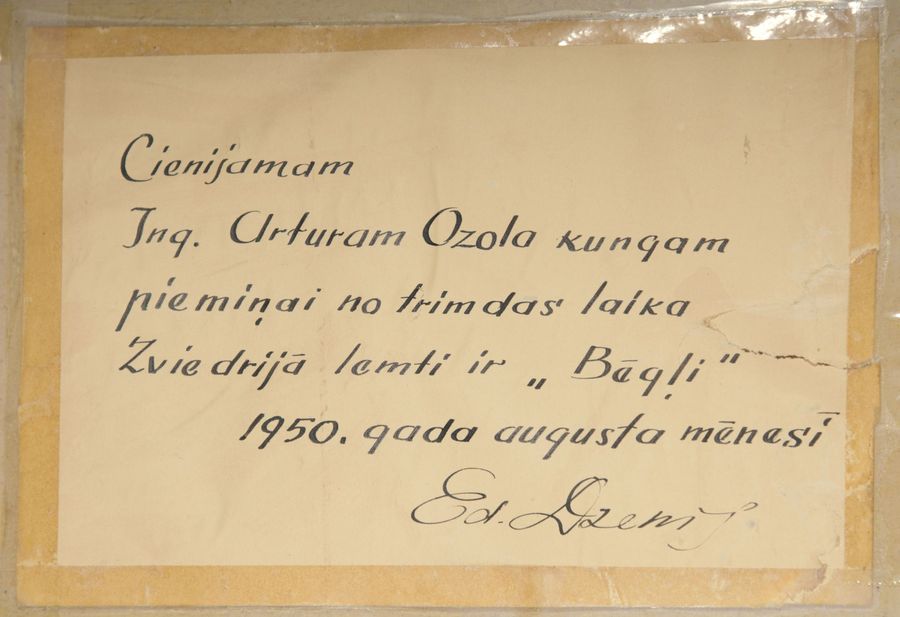 Cienijamam
Ing. Arturam Ozola kungam
piemiņai no trimdas laika
Zviedrijā lemti ir „Bēgļi”
1950. gada augusta mēnesī
Ed. Dzenis